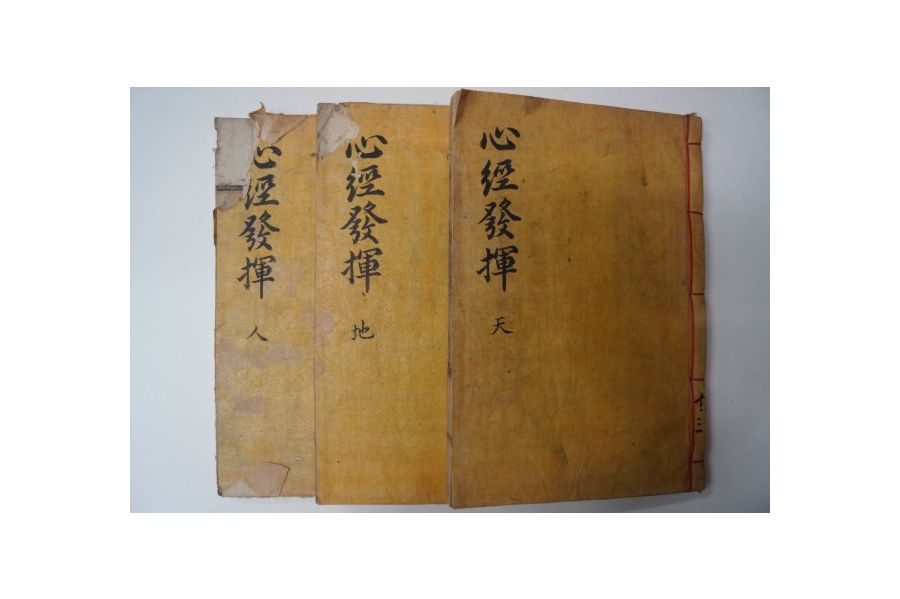 心經發揮
天
心經發揮
地
心經發揮
人